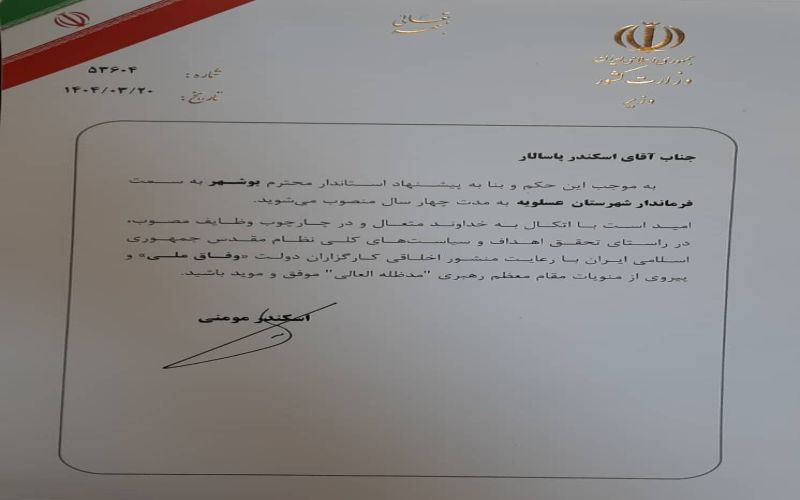 بسمه تعالی
جمهوری اسلامی ایران
وزارت کشور
وزیر
شماره: ۵۳۶۰۴
تاریخ: ۱۴۰۴/۰۳/۲۰
جناب آقای اسکندر پاسالار
به موجب این حکم و بنا به پیشنهاد استاندار محترم بوشهر به سمت
فرماندار شهرستان عسلویه به مدت چهار سال منصوب می‌شوید.
امید است با اتکال به خداوند متعال و در چارچوب وظایف مصوب،
در راستای تحقق اهداف و سیاست‌های کلی نظام مقدس جمهوری
اسلامی ایران با رعایت منشور اخلاقی کارگزاران دولت «وفاق ملی» و
پیروی از منویات مقام معظم رهبری "مدظله العالی" موفق و موید باشید.
اسکندر مومنی